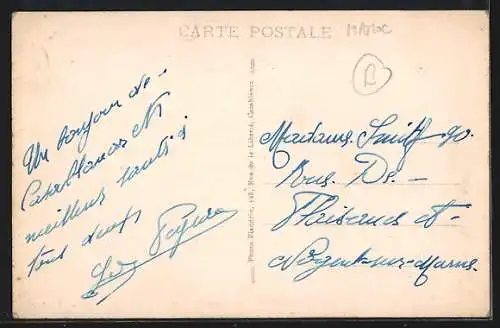 CARTE POSTALE
MAROC
B
Un bonjour de -
Casablanca et
meilleurs
tous deux
Photo Flandrin, Rue de la Liberté, Casablanca
Madame Smith 90.
Rue De -
Plaisance et -
Nogent-sur-Marne